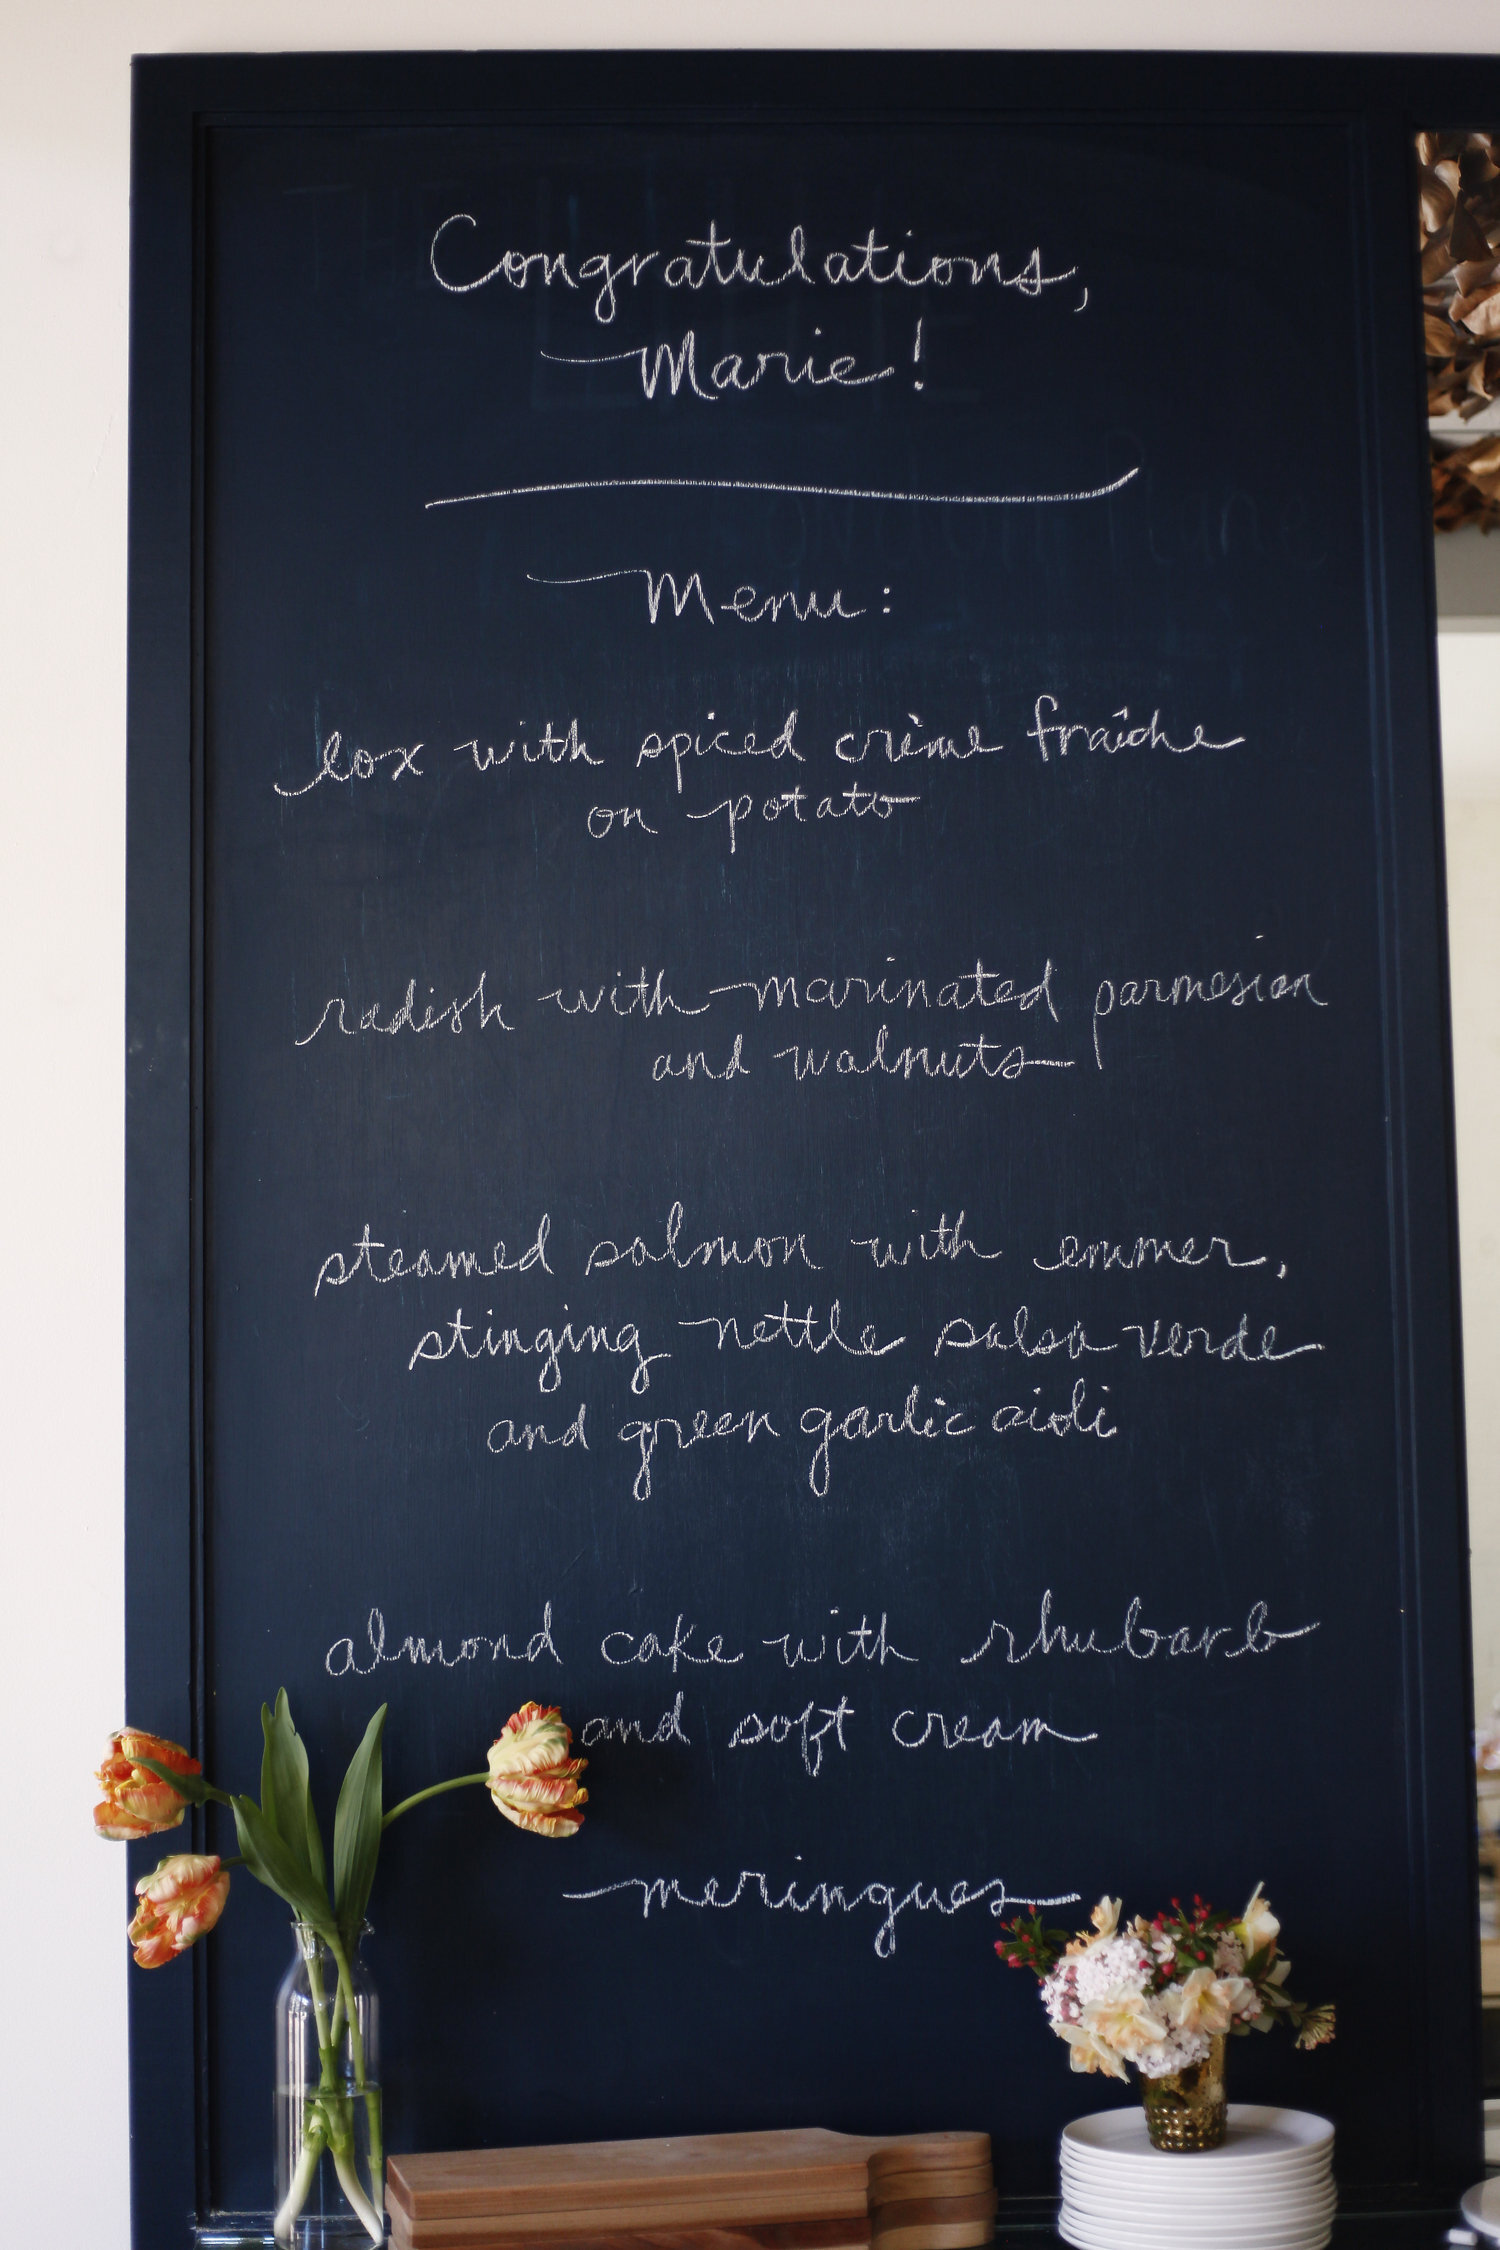 Congratulations,
Marie!
Menu:
lox with spiced crème fraîche
on potato
radish with marinated parmesian
and walnuts
steamed salmon with emmer,
stinging nettle salsa verde
and green garlic aioli
almond cake with rhubarb
and soft cream
meringues